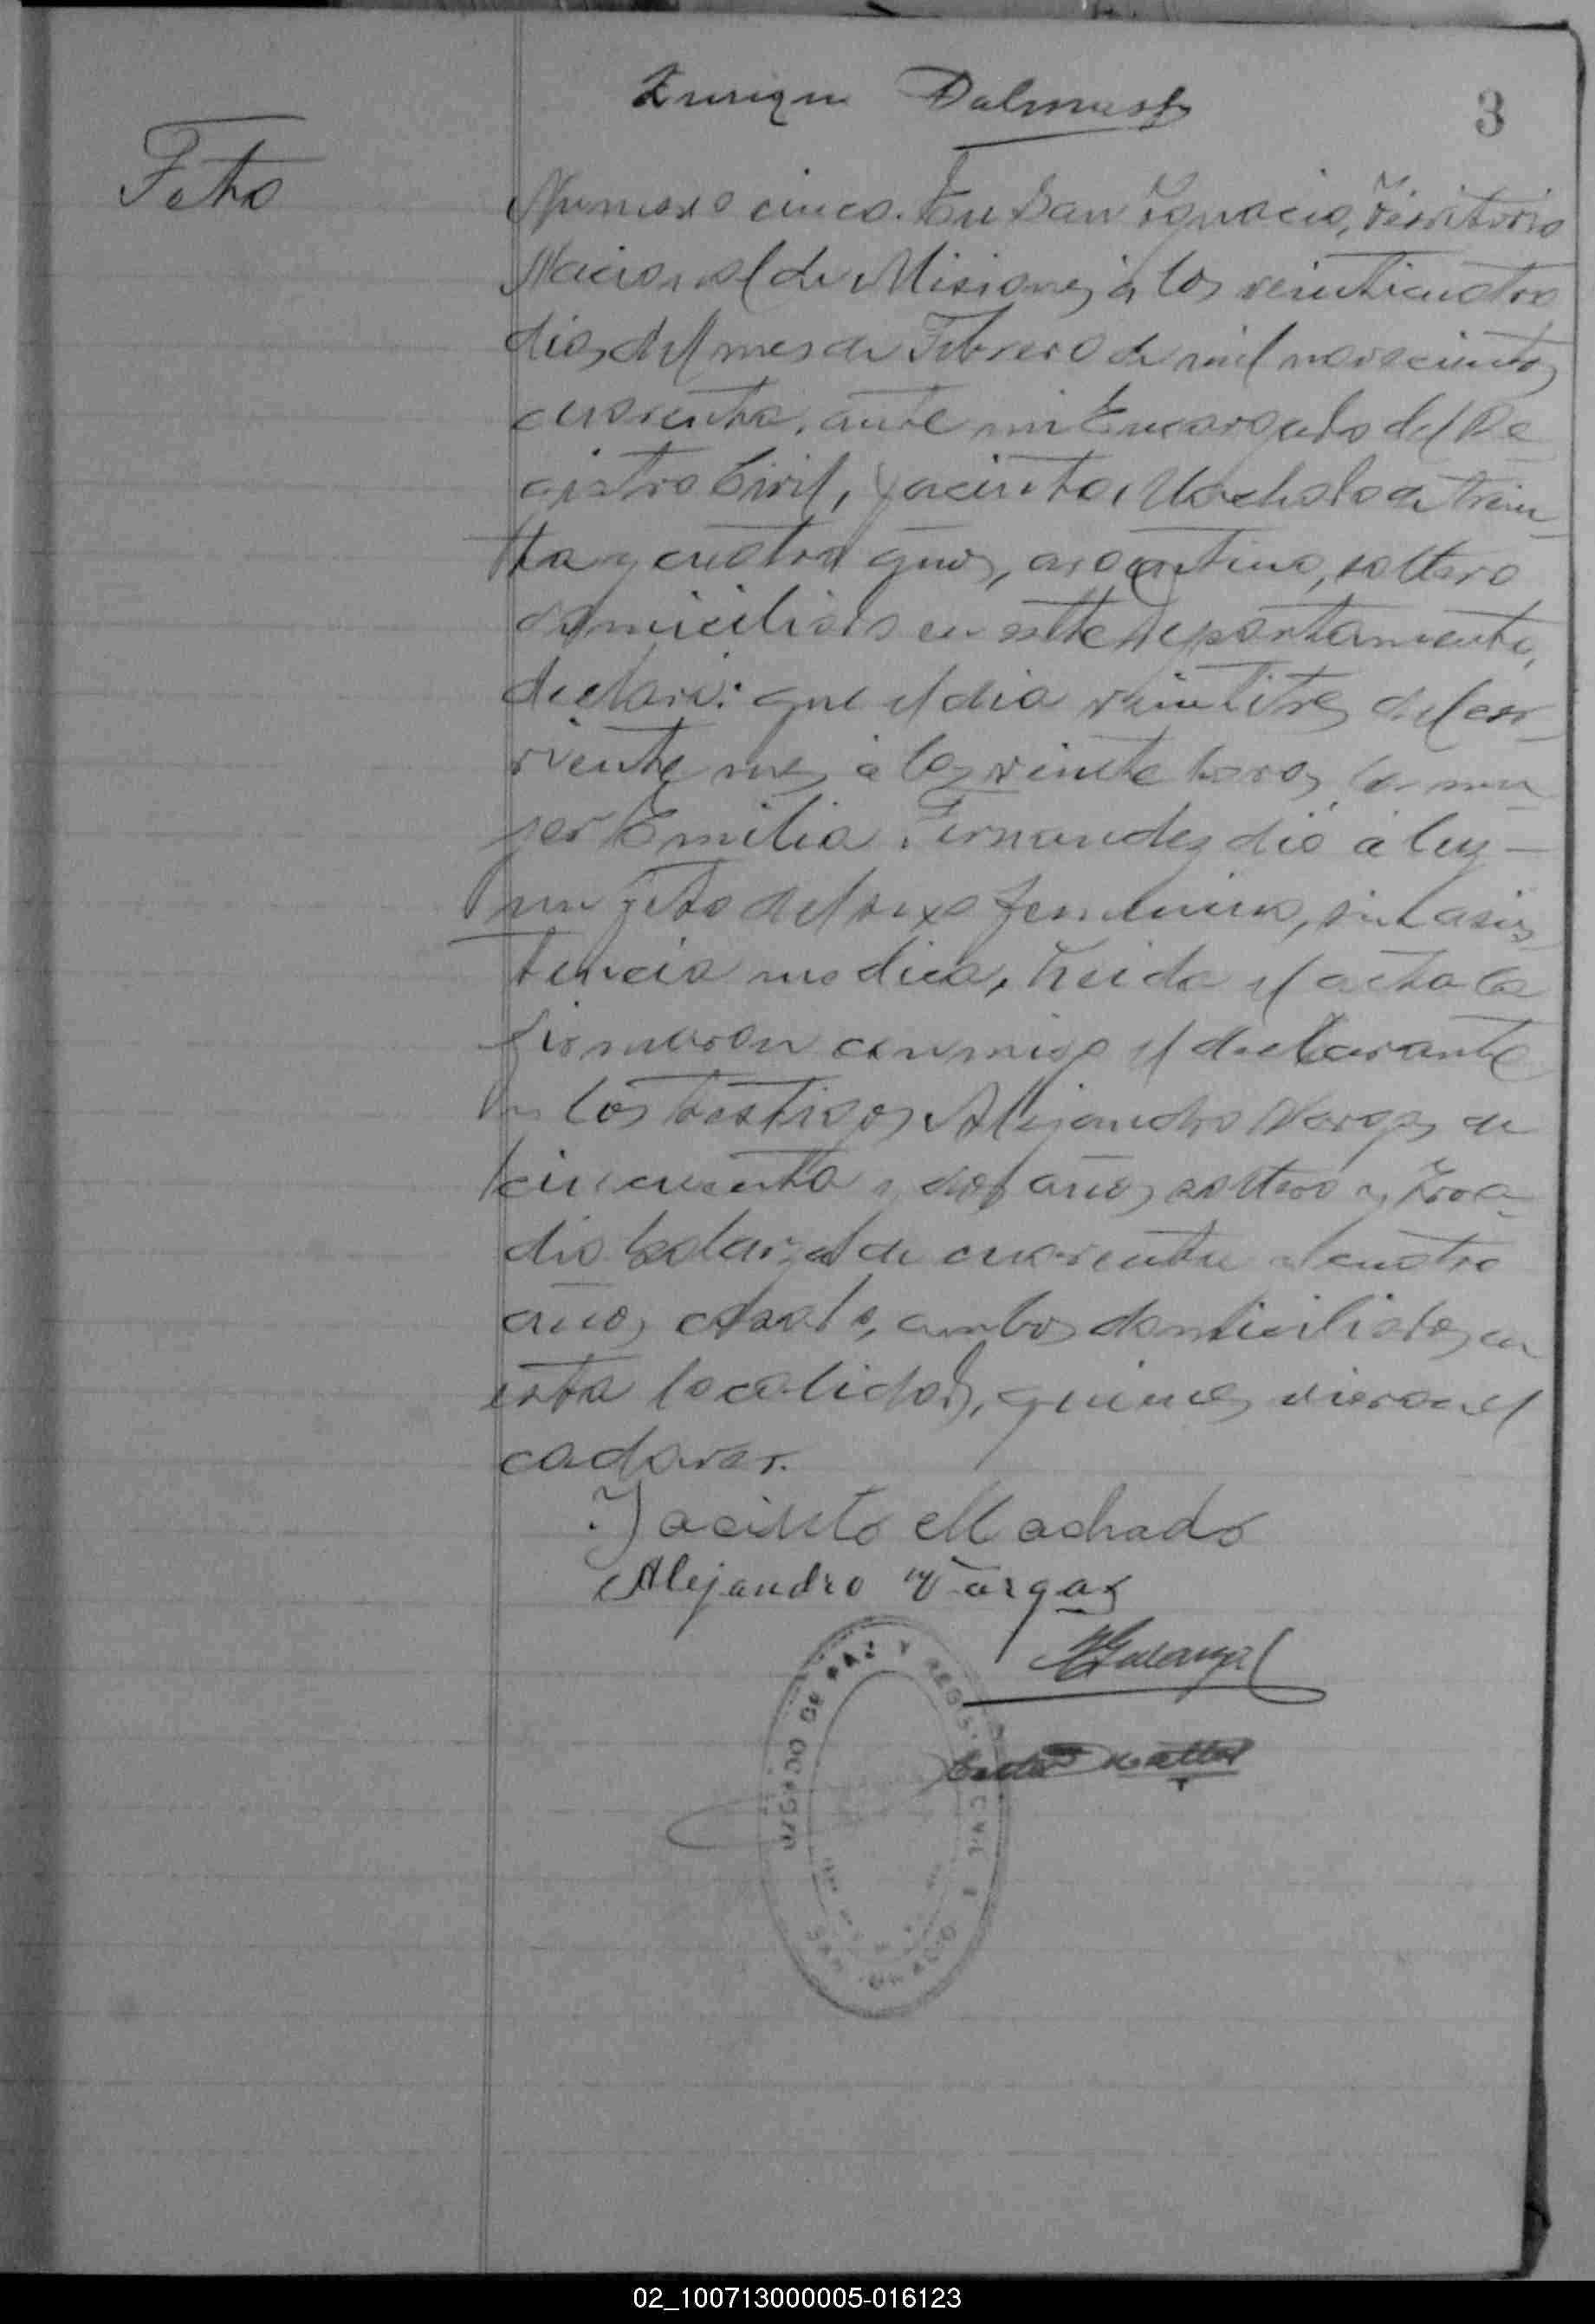 Enrique Dalmust
3
Feto
Numero cinco. En San Ignacio, Territorio
Nacional de Misiones, á los veinticuatro
dias del mes de Febrero de mil novecientos
cuarenta, ante mi Encargado del Re
gistro Civil, Jacinto Machado de trein
ta y cuatro años, argentino, soltero
domiciliado en este departamento,
declaró: que el dia veintitres del cor
riente mes á las veinte horas la mu
jer Emilia Fernandez dió á luz
un feto del sexo femenino, sin asis
tencia medica, Leida el acta la
firmaron conmigo el declarante
y los testigos Alejandro Vargas de
cincuenta y dos años soltero y
de cuarenta cuatro
años casado, ambos domiciliados en
esta localidad, quienes vieron el
cadaver.
Jacinto Machado
Alejandro Vargas
JUZGADO DE PAZ Y REGISTRO CIVIL
SAN IGNACIO
02_100713000005-016123